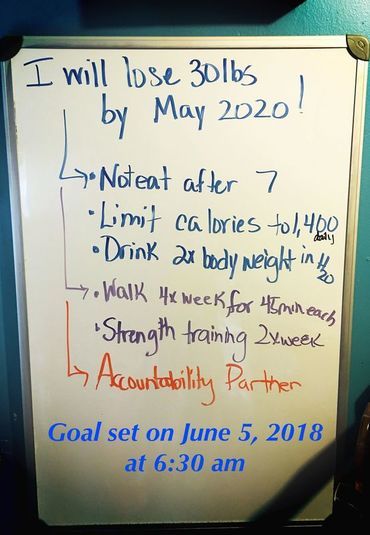 I will lose 30lbs
by May 2020!
• Not eat after 7
• Limit calories to 1,400
daily
• Drink 2x body weight in H20
• Walk 4x week for 45min each
• Strength training 2x week
Accountability Partner
Goal set on June 5, 2018
at 6:30 am